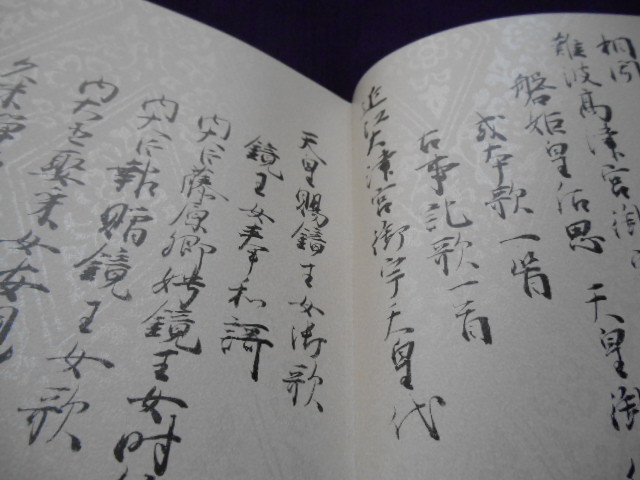 相聞
難波高津宮御
磐姫皇后思天皇御
或本歌一首
古事記歌一首
近江大津宮御宇天皇代
天皇賜鏡王女御歌
鏡王女奉和謌
内大臣藤原卿娉鏡王女時
内大臣報贈鏡王女歌
内大臣娶采女安見
久米禅